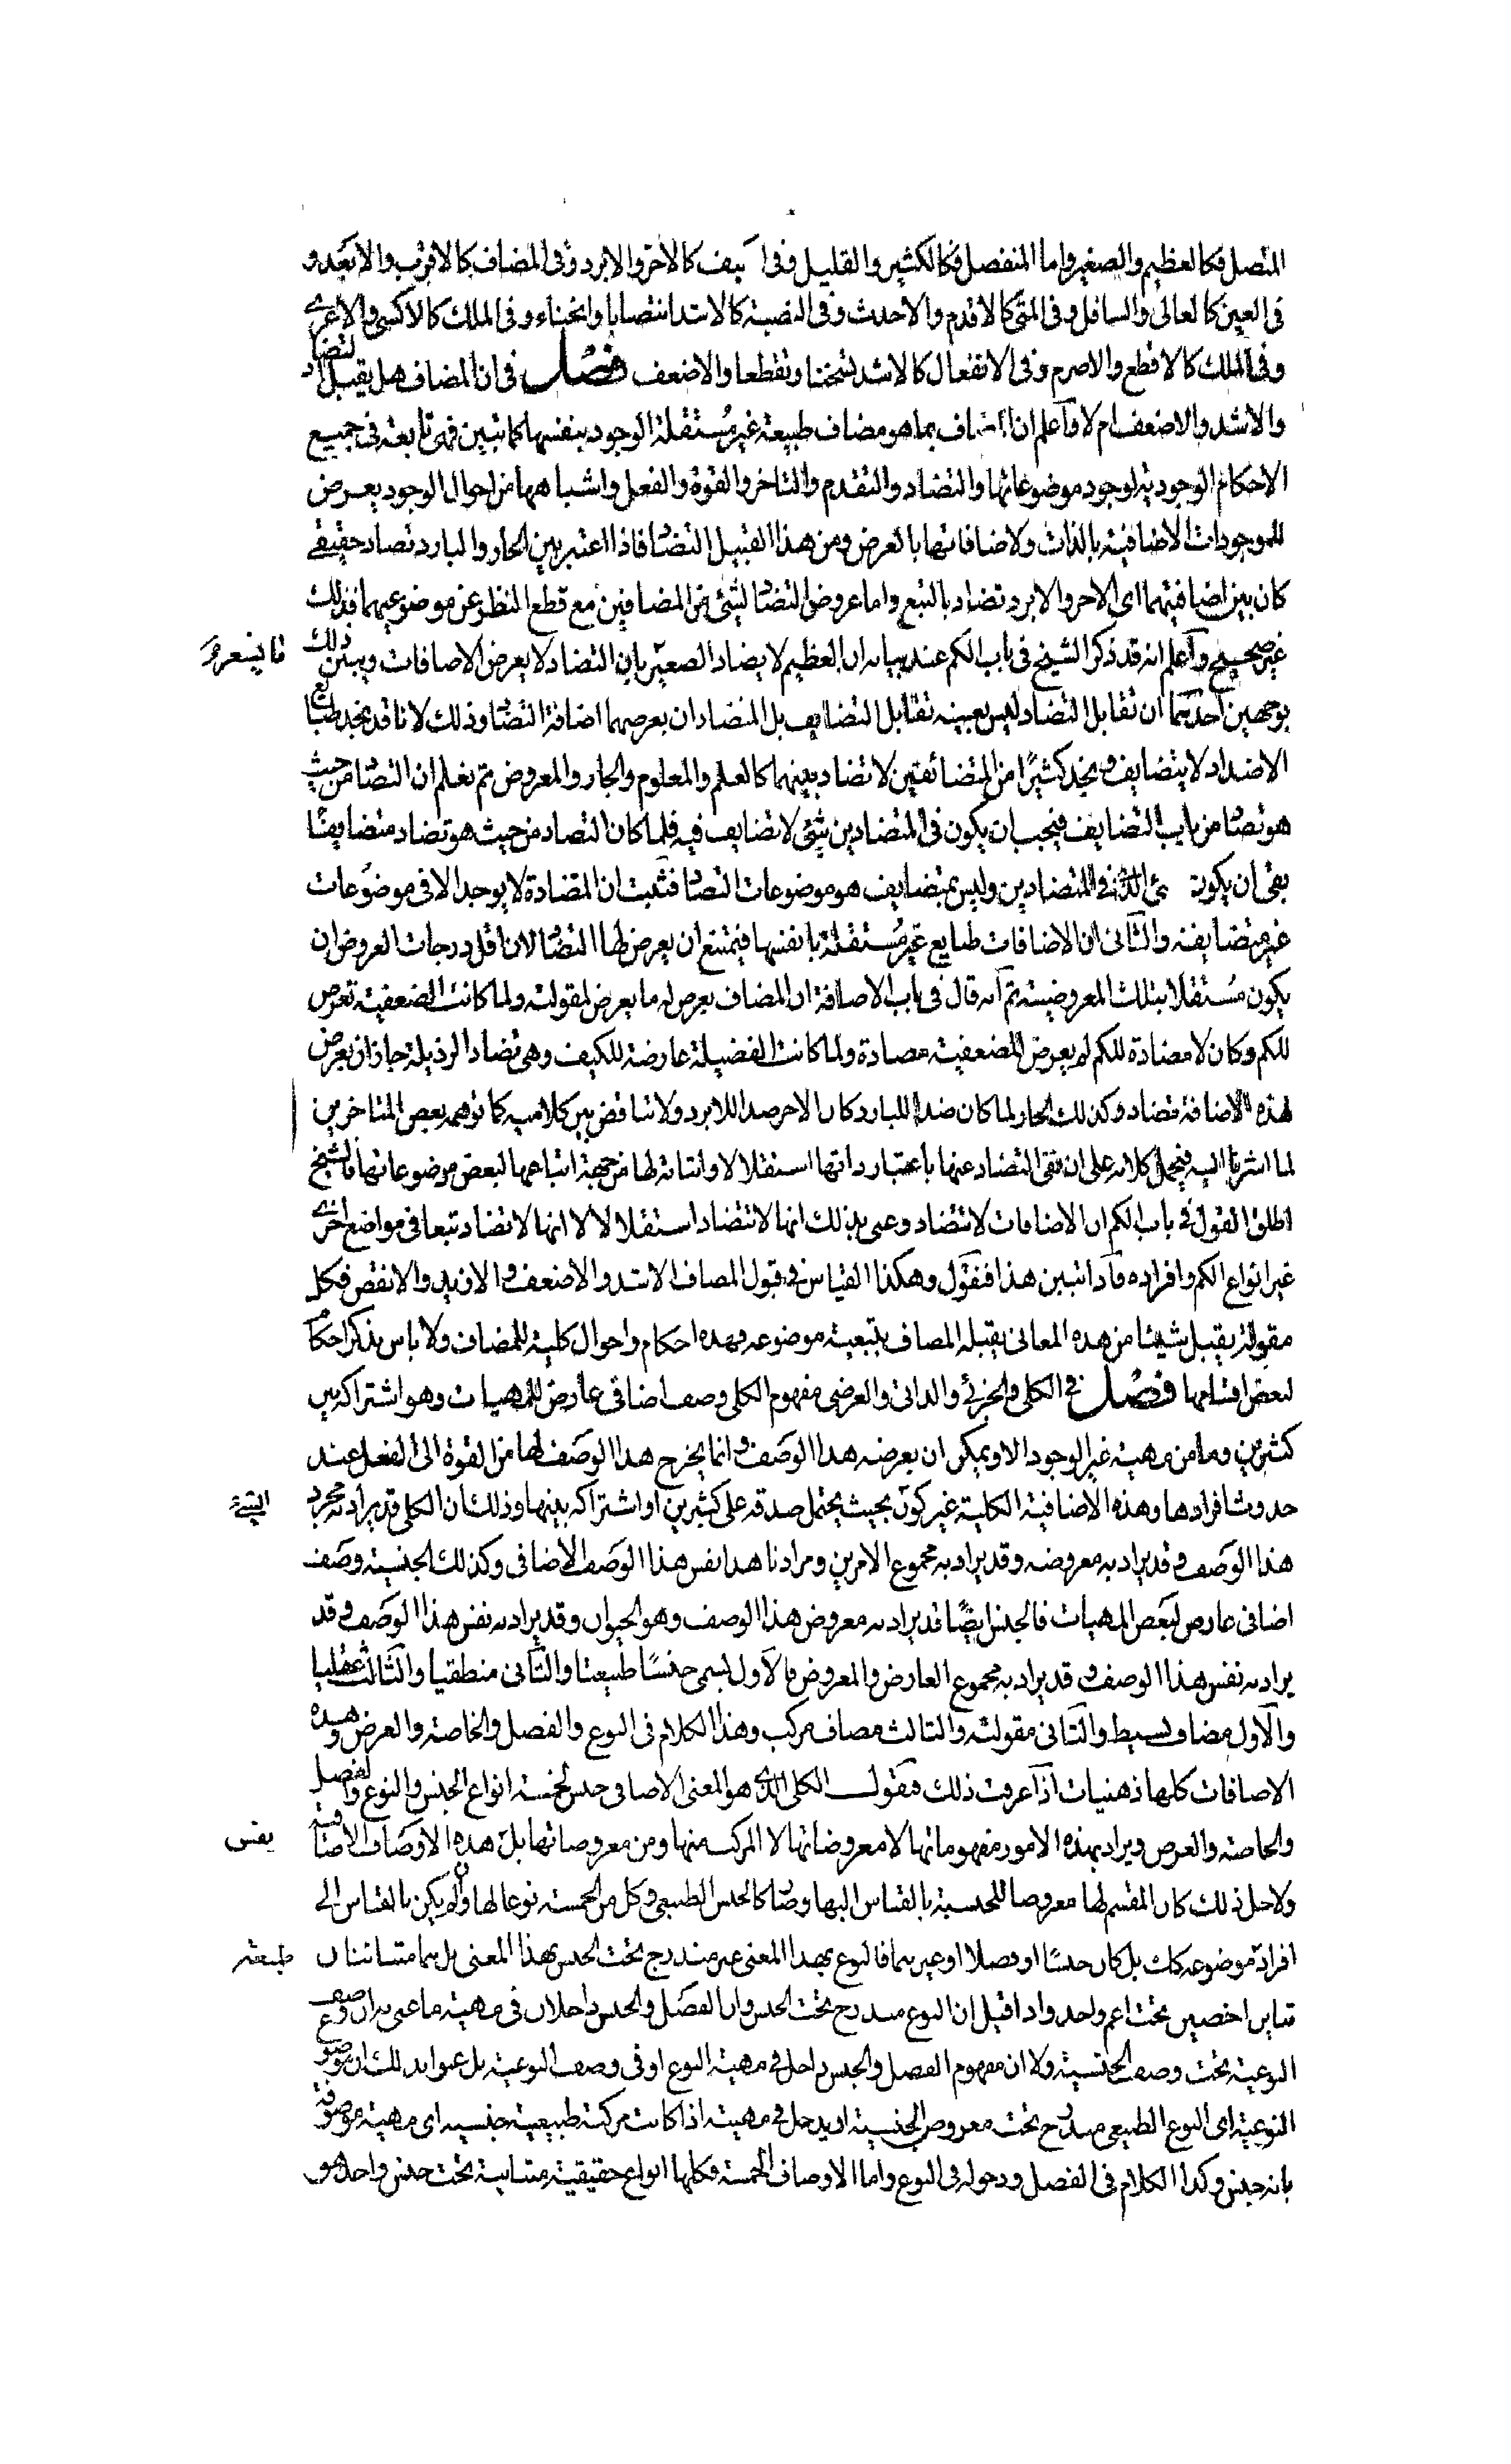 المتصل فكالعظيم والصغير واما المنفصل فكالكثير والقليل وفى الكيف كالاحرّ والابرد وفى المضاف كالاقرب والابعد و
فى العين كالعالى والسافل وفى المتى كالاقدم والاحدث وفى النصبة كالاشد انتصابا وانحناء وفى الملك كالاكسى والاعرى
وفى الملك كالاقطع والاصرم وفى الانفعال كالاشد تسخنا وتقطعا والاضعف فصل فى ان المضاف هل يقبل التضاد
والاشد والاضعف ام لا فاعلم ان المضاف بما هو مضاف طبيعة غير مستقلة الوجود بنفسها كما تبين فهى تابعة فى جميع
الاحكام الوجودية لوجود موضوعاتها والتضاد والتقدم والتاخر والقوة والفعل واشباهها من احوال الوجود يعرض
للموجودات الاضافية بالذات ولاضافاتها بالعرض ومن هذا القبيل التضا فاذا اعتبر بين الحار والبارد تضاد حقيقى
كان بين اضافيتهما اى الاحر والابرد تضاد بالتبع واما عروض التضا لشئ من المضافين مع قطع النظر عن موضوعيهما فذلك
غير صحيح واعلم انه قد ذكر الشيخ فى باب الكم عند بيانه ان العظيم لا يضاد الصغير بان التضاد لا يعرض الاضافات وبين ذلك
بوجهين احدهما ان تقابل التضاد ليس بعينه تقابل التضايف بل المتضاد ان يعرضهما اضافة التضا وذلك لانا قد نجد طبايع
الاضداد لا يتضايف ونجد كثيرا من المتضائفين لا تضاد بينهما كالعلم والمعلوم والجار والمعروض ثم نعلم ان التضا من حيث
هو تضا من باب التضايف فيجب ان يكون فى المتضادين شئ لا تضايف فيه فلما كان التضاد من حيث هو تضاد متضايفا
بقى ان يكون الشئ الذى فى المتضادين وليس بمتضايف هو موضوعات التضا فثبت ان المتضادة لا يوجد الا فى موضوعات
غير متضايفة والثانى ان الاضافات طبايع غير مستقلة بانفسها فيمتنع ان يعرض لها التضا لان اقل درجات العروض ان
يكون مستقلا بتلك المعروضية ثم انه قال فى باب الاضافة ان المضاف يعرض له ما يعرض لمقولته ولما كانت الضعفية تعرض
للكم وكان لا مضادة للكم لم يعرض للضعفية مضادة ولما كانت الفضيلة عارضة للكيف وهى تضاد الرذيلة جاز ان يعرض
لهذه الاضافة تضاد وكذلك الحار لما كان ضدا للبارد كان الاحر ضدا للابرد ولا تناقض بين كلاميه كما توهمه بعض المتاخرين
لما اشرنا اليه فيحمل كلامه على ان نفى التضاد عنها باعتبار ذاتها استقلالا واثباته لها من جهة اتباعها لبعض موضوعاتها فالشيخ
اطلق القول فى باب الكم ان الاضافات لا تتضاد وعنى بذلك انها لا تتضاد استقلالا لا انها لا تتضاد تبعا فى مواضع اخرى
غير انواع الكم وافراده فاذا تبين هذا فنقول وهكذا القياس فى قبول المضاف الاشد والاضعف والازيد والانقص فكل
مقولة يقبل شيئا من هذه المعانى يقبله المضاف بتبعية موضوعه فهذه احكام واحوال كلية للمضاف ولا باس بذكر احكام
لبعض اقسامها فصل فى الكلى والجزئى والذاتى والعرضى مفهوم الكلى وصف اضافى عارض للمهيات وهو اشتراكه بين
كثيرين وما من مهية غير الوجود الا ويمكن ان يعرضه هذا الوصف وانما يخرج هذا الوصف لها من القوة الى الفعل عند
حدوث افرادها وهذه الاضافية الكلية غير كون بحيث يحتمل صدقه على كثيرين او اشتراكه بينها وذلك ان الكلى قد يراد به مجرد
هذا الوصف وقد يراد به معروضه وقد يراد به مجموع الامرين ومرادنا هذا نفس هذا الوصف الاضافى وكذلك الجنسية وصف
اضافى عارض لبعض المهيات فالجنس ايضا قد يراد به معروض هذا الوصف وهو الحيوان وقد يراد به نفس هذا الوصف وقد
يراد به نفس هذا الوصف وقد يراد به مجموع العارض والمعروض فالاول يسمى جنسا طبيعيا والثانى منطقيا والثالث عقليا
والاول مضاف بسيط والثانى مقولته والثالث مضاف مركب وهذا الكلام فى النوع والفصل والخاصة والعرض وهذه
الاضافات كلها ذهنيات اذا عرفت ذلك فنقول الكلى الذى هو المعنى الاضافى جنس لخمسة انواع الجنس والنوع والفصل
والخاصة والعرض ويراد بهذه الامور مفهوماتها لا معروضاتها لا المركب منها ومن معروضاتها بل هذه الاوصاف الاضافية
ولاجل ذلك كان المقسم لها معروضا للجنسية بالقياس اليها وصار كالجنس الطبيعى وكل من الخمسة نوعا لها وان لم يكن بالقياس الى
افراد موضوعه كك بل كان جنسا او فصلا او غيرهما فالنوع بهذا المعنى غير مندرج تحت الجنس بهذا المعنى بل هما متباينان
تباين اخصين تحت اعم واحد واذا قيل ان النوع مندرج تحت الجنس وان الفصل والجنس داخلان فى مهية ما عنى به ان وصف
النوعية تحت وصف الجنسية ولا ان مفهوم الفصل والجنس داخل فى مهية النوع او فى وصف النوعية بل عنوا بذلك ان موضوع
النوعية اى النوع الطبيعى مندرج تحت معروض الجنسية او يدخل فى مهية اذا كانت مركبة طبيعية جنسية اى مهية موصوفة
بانه جنس وكذا الكلام فى الفصل ودخوله فى النوع واما الاوصاف الخمسة فكلها انواع حقيقية متباينة تحت جنس واحد هو
الشئ
نفس
طبيعته